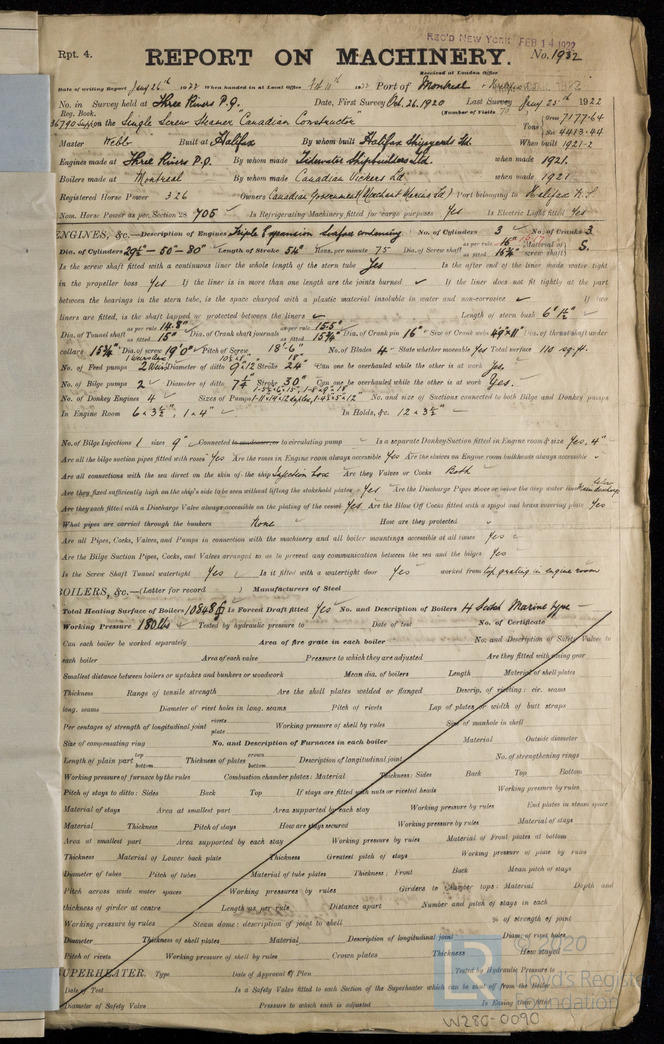 Rpt. 4.
REPORT ON MACHINERY.
REC'D NEW YORK FEB 14 1922
No. 1932
Received at London Office
Date of writing Report Jany 26th 1922 When handed in at Local Office Feb 11th 1922 Port of Montreal
No. in Survey held at Three Rivers P.Q. Date, First Survey Oct. 26. 1920 Last Survey Jany 25th 1922
Reg. Book. (Number of Visits
36790 Supp on the Single Screw Steamer "Canadian Constructor" Tons Gross 7177.64 Net 4413.44
Master Webb Built at Halifax By whom built Halifax Shipyards Ltd. When built 1921-2
Engines made at Three Rivers P.Q. By whom made Tidewater Shipbuilders Ltd. when made 1921.
Boilers made at Montreal By whom made Canadian Vickers Ld when made 1921
Registered Horse Power 326 Owners Canadian Government Merchant Marine Ld Port belonging to Halifax N.S.
Nom. Horse Power as per Section 28 705 Is Refrigerating Machinery fitted for cargo purposes Yes Is Electric Light fitted Yes
ENGINES, &c.—Description of Engines Triple Expansion Surface condensing No. of Cylinders 3 No. of Cranks 3.
Dia. of Cylinders 29½ - 50 - 80" Length of Stroke 54" Revs. per minute 75 Dia. of Screw shaft as per rule as fitted 16¾" Material of screw shaft S.
Is the screw shaft fitted with a continuous liner the whole length of the stern tube Yes Is the after end of the liner made water tight
in the propeller boss Yes If the liner is in more than one length are the joints burned If the liner does not fit tightly at the part
between the bearings in the stern tube, is the space charged with a plastic material insoluble in water and non-corrosive If two
liners are fitted, is the shaft lapped or protected between the liners Length of stern bush 6' 1½"
Dia. of Tunnel shaft as per rule 14.8" as fitted 15" Dia. of Crank shaft journals as per rule 15.5" as fitted 15¾" Dia. of Crank pin 16" Size of Crank webs Dia. of thrust shaft under
collars 15¾" Dia. of screw 19'0" Pitch of Screw 18'-6" No. of Blades 4 State whether moveable Yes Total surface 110 sq. ft.
No. of Feed pumps 2 Weirs Diameter of ditto Stroke 24" Can one be overhauled while the other is at work Yes.
No. of Bilge pumps 2 Diameter of ditto Stroke 30" Can one be overhauled while the other is at work Yes.
No. of Donkey Engines 4 Sizes of Pumps No. and size of Suctions connected to both Bilge and Donkey pumps
In Engine Room 6 x 3½", 1 x 4" In Holds, &c. 12 x 3½"
No. of Bilge Injections 1 sizes 9" Connected to condenser or to circulating pump Is a separate Donkey Suction fitted in Engine room & size Yes, 4"
Are all the bilge suction pipes fitted with roses Yes Are the roses in Engine room always accessible Yes Are the sluices on Engine room bulkheads always accessible
Are all connections with the sea direct on the skin of the ship Injection box Are they Valves or Cocks Both
Are they fixed sufficiently high on the ship's side to be seen without lifting the stokehold plates Yes Are the Discharge Pipes above or below the deep water line
Are they each fitted with a Discharge Valve always accessible on the plating of the vessel Yes Are the Blow Off Cocks fitted with a spigot and brass covering plate Yes
What pipes are carried through the bunkers None How are they protected
Are all Pipes, Cocks, Valves, and Pumps in connection with the machinery and all boiler mountings accessible at all times Yes
Are the Bilge Suction Pipes, Cocks, and Valves arranged so as to prevent any communication between the sea and the bilges Yes
Is the Screw Shaft Tunnel watertight Yes Is it fitted with a watertight door Yes worked from top grating in engine room
BOILERS, &c.—(Letter for record ) Manufacturers of Steel
Total Heating Surface of Boilers 10848 Is Forced Draft fitted Yes No. and Description of Boilers 4 Scotch Marine type
Working Pressure 180 lb Tested by hydraulic pressure to Date of test No. of Certificate
Can each boiler be worked separately Area of fire grate in each boiler No. and Description of Safety Valves to
each boiler Area of each valve Pressure to which they are adjusted Are they fitted with easing gear
Smallest distance between boilers or uptakes and bunkers or woodwork Mean dia. of boilers Length Material of shell plates
Thickness Range of tensile strength Are the shell plates welded or flanged Descrip. of riveting: cir. seams
long. seams Diameter of rivet holes in long. seams Pitch of rivets Lap of plates or width of butt straps
Per centages of strength of longitudinal joint rivets plate Working pressure of shell by rules Size of manhole in shell
Size of compensating ring No. and Description of Furnaces in each boiler Material Outside diameter
Length of plain part top bottom Thickness of plates crown bottom Description of longitudinal joint No. of strengthening rings
Working pressure of furnace by the rules Combustion chamber plates: Material Thickness: Sides Back Top Bottom
Pitch of stays to ditto: Sides Back Top If stays are fitted with nuts or riveted heads Working pressure by rules
Material of stays Area at smallest part Area supported by each stay Working pressure by rules End plates in steam space
Material Thickness Pitch of stays How are stays secured Working pressure by rules Material of stays
Area at smallest part Area supported by each stay Working pressure by rules Material of Front plates at bottom
Thickness Material of Lower back plate Thickness Greatest pitch of stays Working pressure of plate by rules
Diameter of tubes Pitch of tubes Material of tube plates Thickness: Front Back Mean pitch of stays
Pitch across wide water spaces Working pressures by rules Girders to Chamber tops: Material Depth and
thickness of girder at centre Length as per rule Distance apart Number and pitch of stays in each
Working pressure by rules Steam dome: description of joint to shell % of strength of joint
Diameter Thickness of shell plates Material Description of longitudinal joint Diam. of rivet holes
Pitch of rivets Working pressure of shell by rules Crown plates Thickness How stayed
SUPERHEATER. Type Date of Approval of Plan Tested by Hydraulic Pressure to
Date of Test Is a Safety Valve fitted to each Section of the Superheater which can be shut off from the Boiler
Diameter of Safety Valve Pressure to which each is adjusted Is Easing Gear fitted
© 2020
Lloyd's Register
Foundation
W280-0090